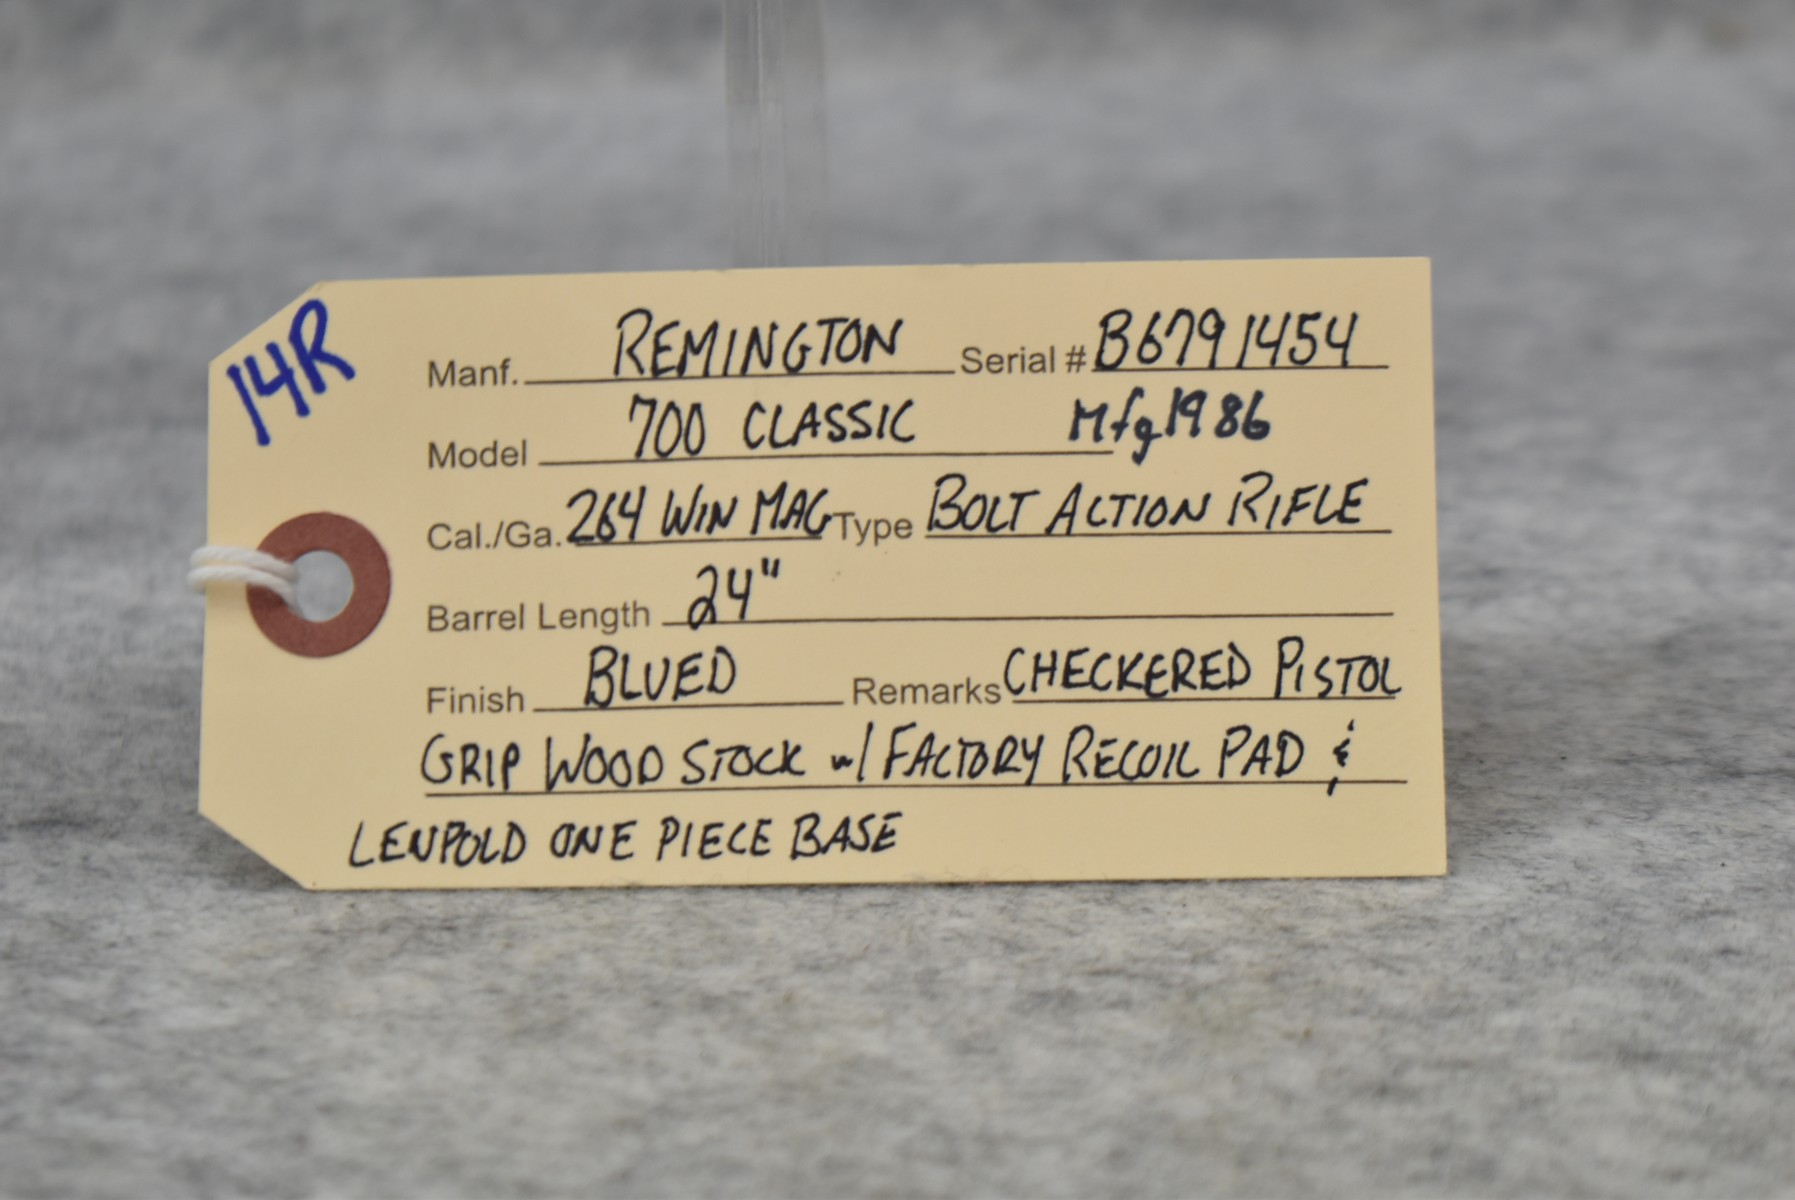 14R
Manf. REMINGTON Serial # B6791454
Model 700 CLASSIC Mfg 1986
Cal./Ga. 264 WIN MAG Type BOLT ACTION RIFLE
Barrel Length 24"
Finish BLUED Remarks CHECKERED PISTOL
GRIP WOOD STOCK w/ FACTORY RECOIL PAD &
LEUPOLD ONE PIECE BASE